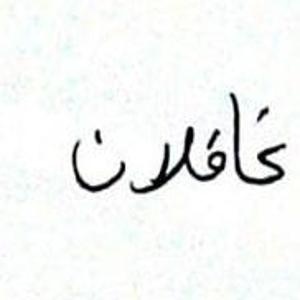 غافلان